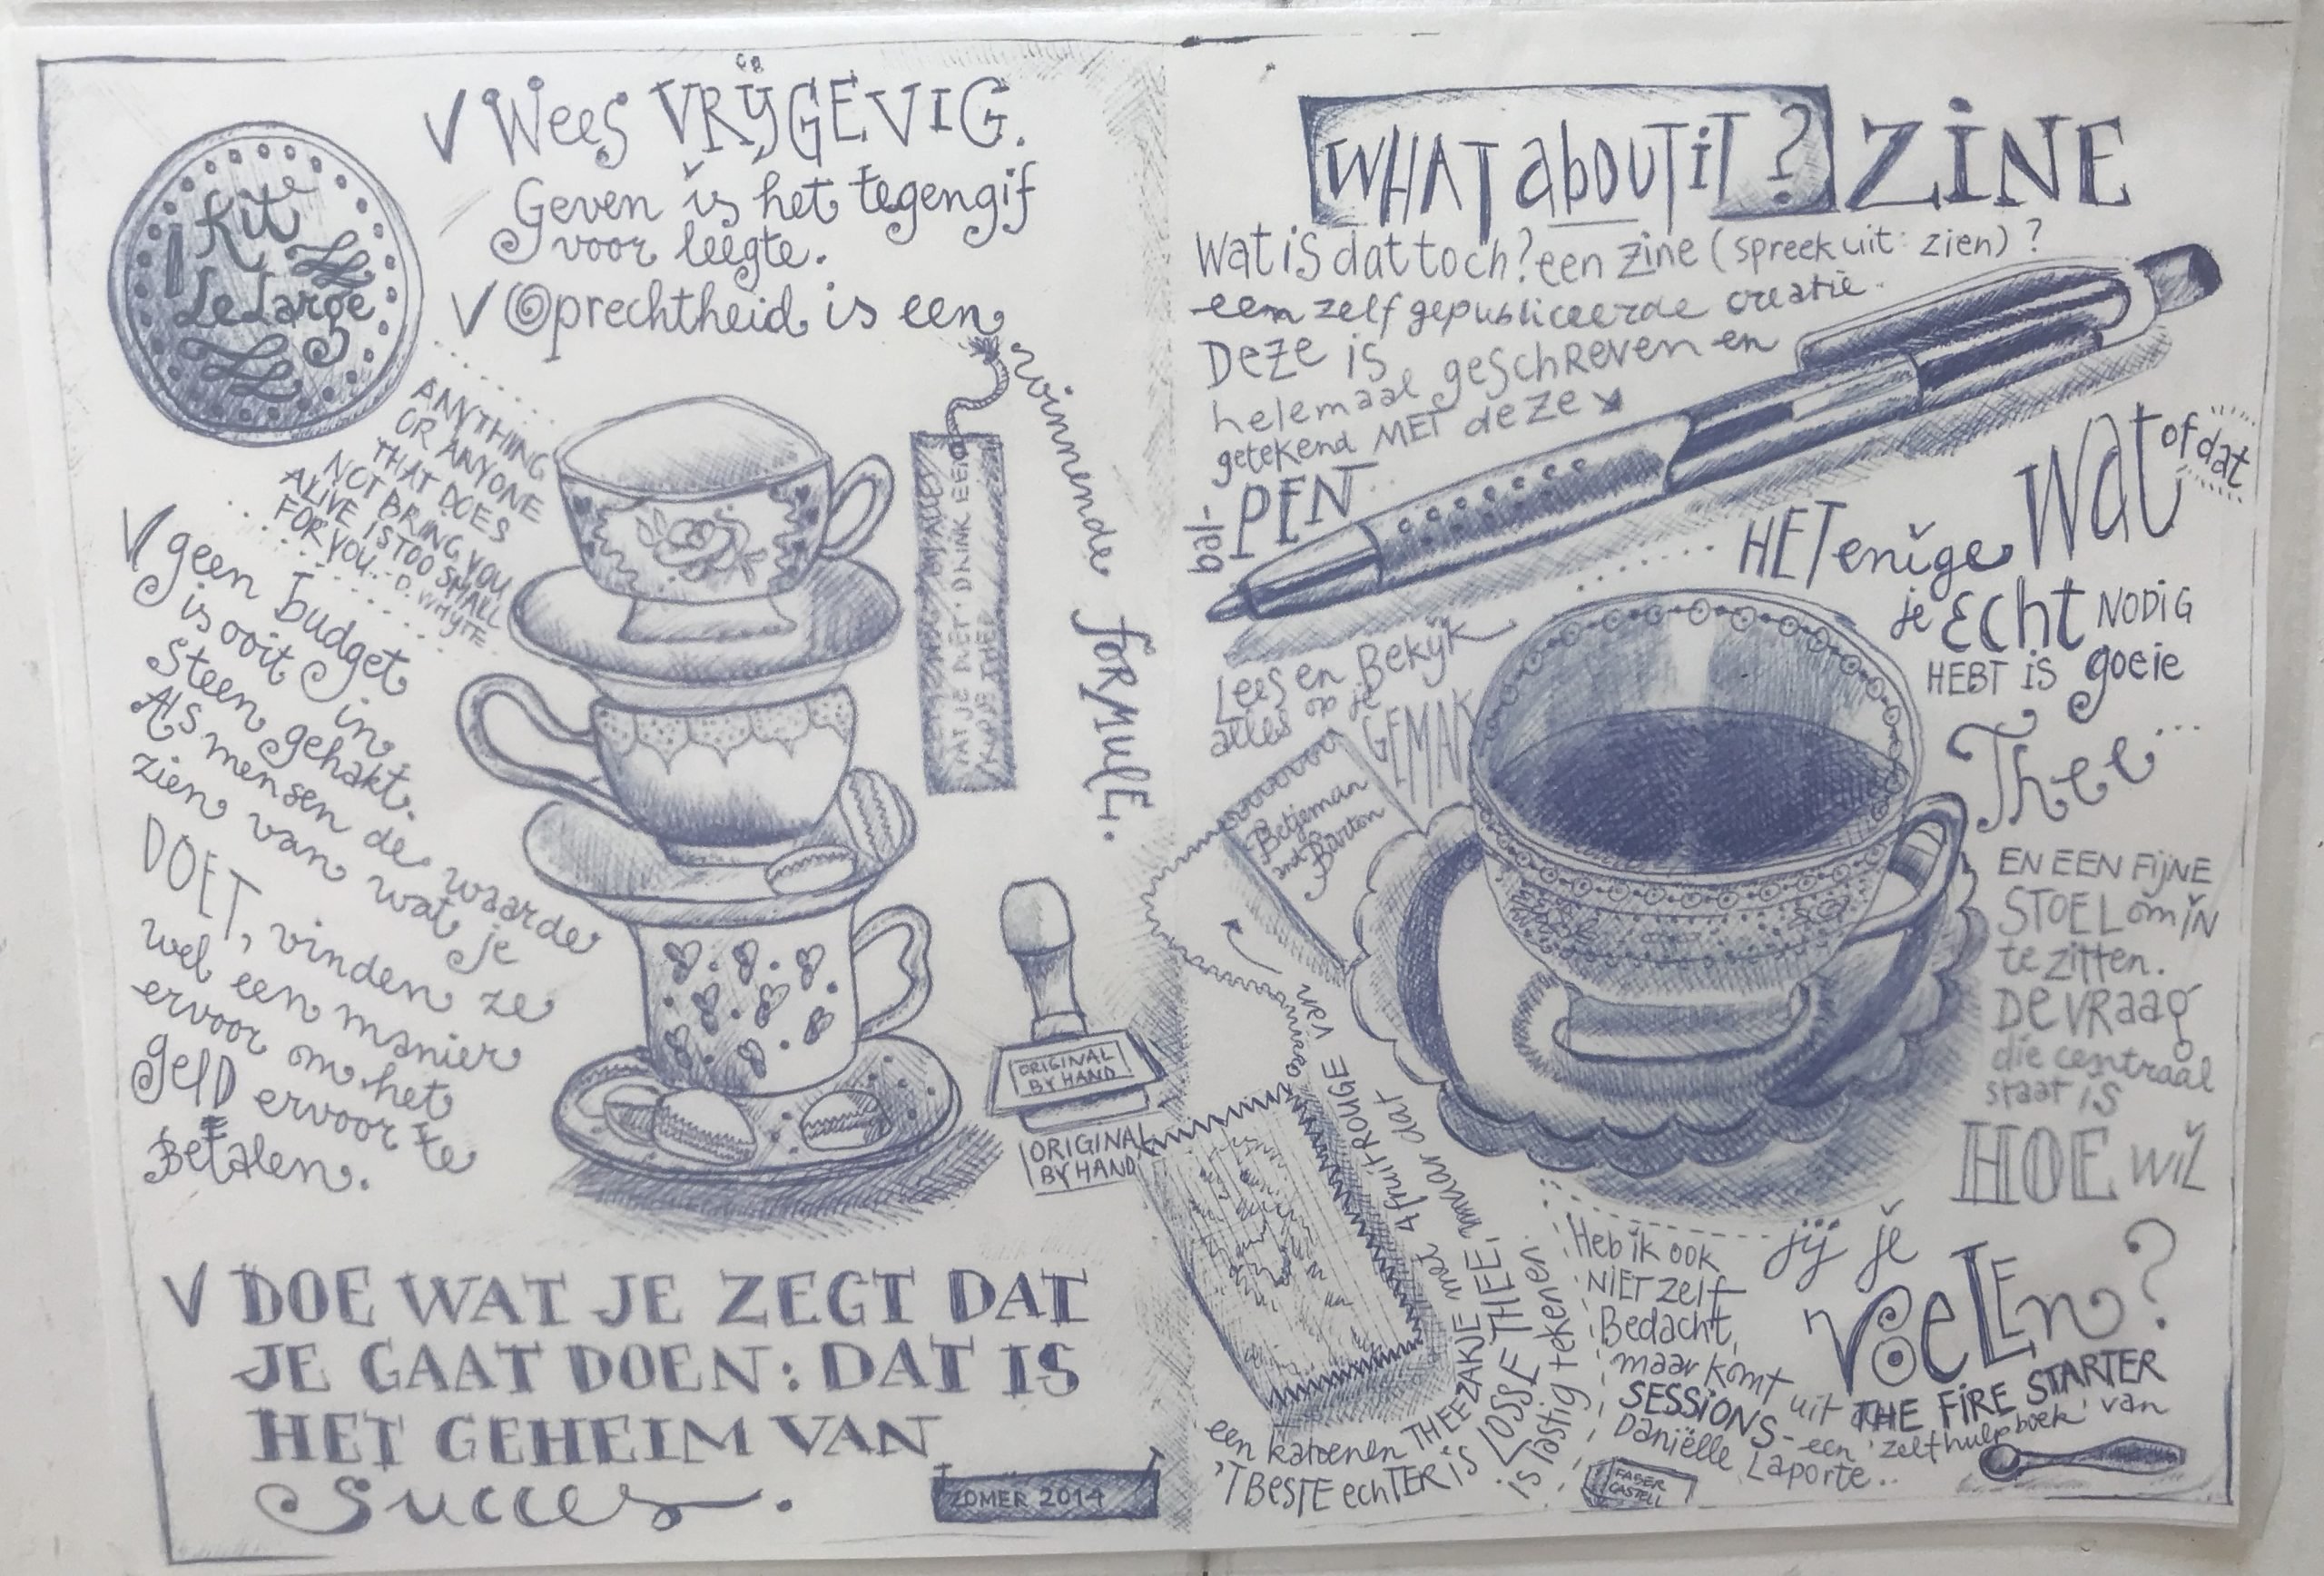 Kit
Le Large
V Wees VRIJGEVIG.
Geven is het tegengif
voor leegte.
V Oprechtheid is een
winnende formule.
ANYTHING
OR ANYONE
THAT DOES
NOT BRING YOU
ALIVE IS TOO SMALL
FOR YOU... D. WHYTE
V geen budget
is ooit in
steen gehakt.
Als mensen de waarde
zien van wat je
DOET, vinden ze
wel een manier
ervoor om het
GELD ervoor te
Betalen.
DRINK EEN
ORIGINAL
BY HAND
ORIGINAL
BY HAND
V DOE WAT JE ZEGT DAT
JE GAAT DOEN: DAT IS
HET GEHEIM VAN
Succes.
ZOMER 2014
WHAT aboUT iT? ZiNE
Wat is dat toch? een zine (spreek uit: zien)?
een zelf gepubliceerde creatie.
Deze is
helemaal geschreven en
getekend MET deze
bal-
PEN
Lees en Bekijk
alles op je
GEMAK
Betjeman
and
Barton
HET enige Wat of dat
je Echt NODIG
HEBT IS goeie
Thee...
EN EEN FIJNE
STOEL om IN
te zitten.
De VRaag
die centraal
staat is
HOE wil
jij je
VoeLEn?
een katoenen THEEZAKJE met 4 fruit ROUGE van
'T BESTE echTER is LOSSE THEE, maar dat
is lastig tekenen.
Heb ik ook
NIET zelf
Bedacht,
maar komt uit THE FIRE STARTER
SESSIONS - een 'zelfhulpboek' van
Daniëlle Laporte..
FABER
CASTELL